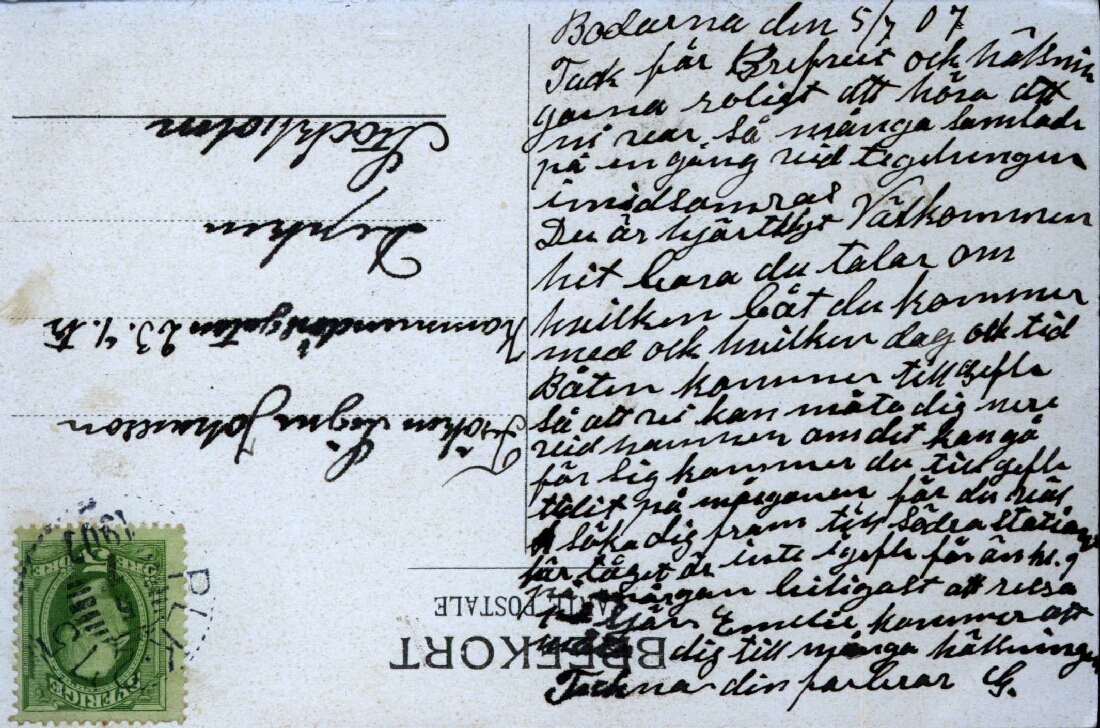 Bodarna den 5/7 07
Tack för Brefvet och hälsnin
garna roligt att höra att
ni var så många samlade
på en gång vid
i midsomras
Du är hjärtligt Välkommen
hit bara du talar om
hvilken båt du kommer
med och hvilken dag och tid
Båten kommer till Gefle
så att vi kan möta dig nere
vid hamnen om det kan gå
för sig kommer du till Gefle
tidit på morgonen får du väl
söka dig fram till Södra station
för tåget är inte i Gefle för än kl. 9
billigast att resa
Emelie kommer att
dig till många hälsningar
Tecknar din farbror G.
BREFKORT
CARTE POSTALE
Fröken Signe Johansson
Kommendörsgatan 23. 4. tr
Stockholm
SVERIGE
FEM ÖRE
1907